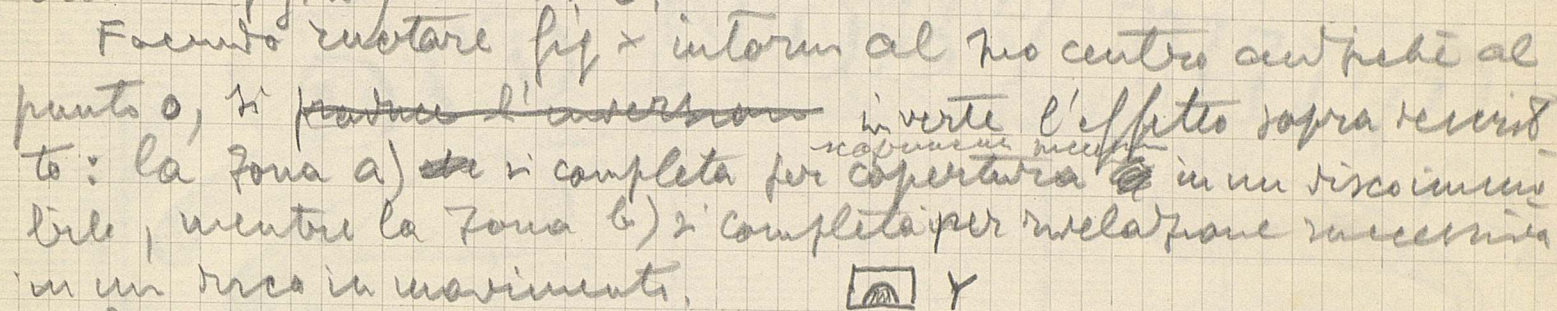 Facendo ruotare fig x intorno al suo centro anzichè al
punto o, si produce l'inversione inverte l'effetto sopra descrit-
to: la zona a) si completa per copertura in un disco immo-
bile, mentre la zona b) si completa per rivelazione successiva
in un disco in movimento. Y